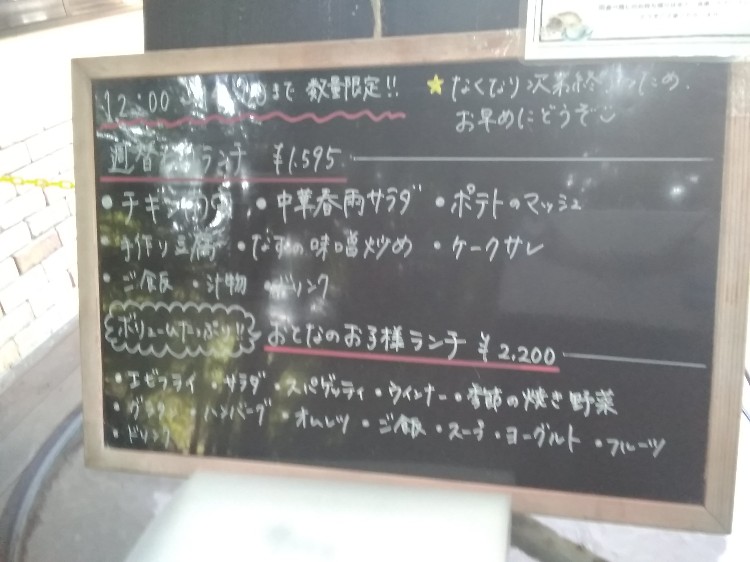 12:00 まで 数量限定!!
★なくなり次第終 ったの、
お早めにどうぞ
週替 ランチ ¥1,595
・チキン ・中華春雨サラダ ・ポテトのマッシュ
・手作り豆腐 ・なすの味噌炒め ・ケークサレ
・ご飯 ・汁物 ・ドリンク
ボリュームたっぷり!! おとなのお子様ランチ ¥2,200
・エビフライ ・サラダ ・スパゲッティ ・ウインナー ・季節の焼き野菜
・グラタン ・ハンバーグ ・オムレツ ・ご飯 ・スープ ・ヨーグルト ・フルーツ
・ドリンク